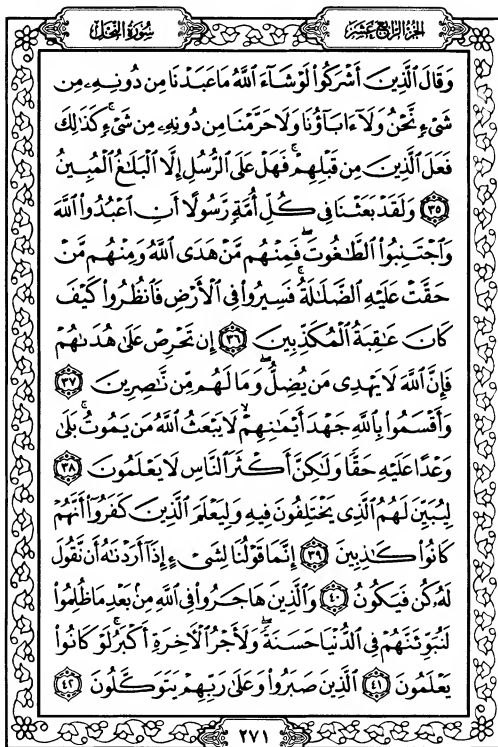 سُورَةُ النَّحْلِ
الجُزءُ الرَّابِعَ عَشَرَ
وَقَالَ ٱلَّذِينَ أَشْرَكُوا۟ لَوْ شَآءَ ٱللَّهُ مَا عَبَدْنَا مِن دُونِهِۦ مِن
شَىْءٍ نَّحْنُ وَلَآ ءَابَآؤُنَا وَلَا حَرَّمْنَا مِن دُونِهِۦ مِن شَىْءٍ ۚ كَذَٰلِكَ
فَعَلَ ٱلَّذِينَ مِن قَبْلِهِمْ ۚ فَهَلْ عَلَى ٱلرُّسُلِ إِلَّا ٱلْبَلَٰغُ ٱلْمُبِينُ
٣٥ وَلَقَدْ بَعَثْنَا فِى كُلِّ أُمَّةٍ رَّسُولًا أَنِ ٱعْبُدُوا۟ ٱللَّهَ
وَٱجْتَنِبُوا۟ ٱلطَّٰغُوتَ ۖ فَمِنْهُم مَّنْ هَدَى ٱللَّهُ وَمِنْهُم مَّنْ
حَقَّتْ عَلَيْهِ ٱلضَّلَٰلَةُ ۚ فَسِيرُوا۟ فِى ٱلْأَرْضِ فَٱنظُرُوا۟ كَيْفَ
كَانَ عَٰقِبَةُ ٱلْمُكَذِّبِينَ ٣٦ إِن تَحْرِصْ عَلَىٰ هُدَىٰهُمْ
فَإِنَّ ٱللَّهَ لَا يَهْدِى مَن يُضِلُّ ۖ وَمَا لَهُم مِّن نَّٰصِرِينَ ٣٧
وَأَقْسَمُوا۟ بِٱللَّهِ جَهْدَ أَيْمَٰنِهِمْ ۙ لَا يَبْعَثُ ٱللَّهُ مَن يَمُوتُ ۚ بَلَىٰ
وَعْدًا عَلَيْهِ حَقًّا وَلَٰكِنَّ أَكْثَرَ ٱلنَّاسِ لَا يَعْلَمُونَ ٣٨
لِيُبَيِّنَ لَهُمُ ٱلَّذِى يَخْتَلِفُونَ فِيهِ وَلِيَعْلَمَ ٱلَّذِينَ كَفَرُوٓا۟ أَنَّهُمْ
كَانُوا۟ كَٰذِبِينَ ٣٩ إِنَّمَا قَوْلُنَا لِشَىْءٍ إِذَآ أَرَدْنَٰهُ أَن نَّقُولَ
لَهُۥ كُن فَيَكُونُ ٤٠ وَٱلَّذِينَ هَاجَرُوا۟ فِى ٱللَّهِ مِنۢ بَعْدِ مَا ظُلِمُوا۟
لَنُبَوِّئَنَّهُمْ فِى ٱلدُّنْيَا حَسَنَةً ۖ وَلَأَجْرُ ٱلْءَاخِرَةِ أَكْبَرُ ۚ لَوْ كَانُوا۟
يَعْلَمُونَ ٤١ ٱلَّذِينَ صَبَرُوا۟ وَعَلَىٰ رَبِّهِمْ يَتَوَكَّلُونَ ٤٢
٢٧١